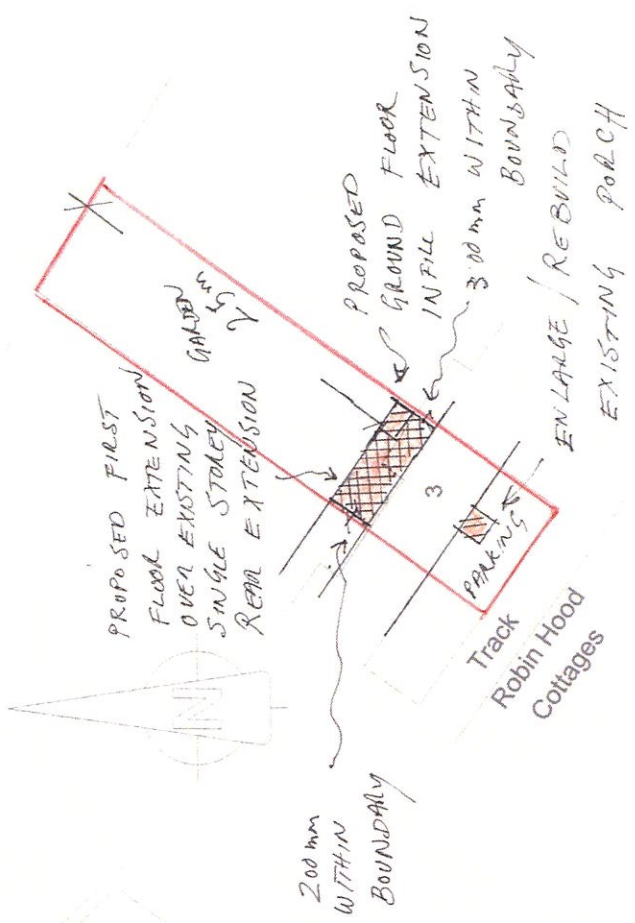 PROPOSED FIRST
FLOOR EXTENSION
OVER EXISTING
SINGLE STOREY
REAR EXTENSION
GARDEN
25m
PROPOSED
GROUND FLOOR
INFILL EXTENSION
300mm WITHIN
BOUNDARY
ENLARGE / REBUILD
EXISTING PORCH
3
PARKING
Track
Robin Hood
Cottages
200mm
WITHIN
BOUNDARY
N